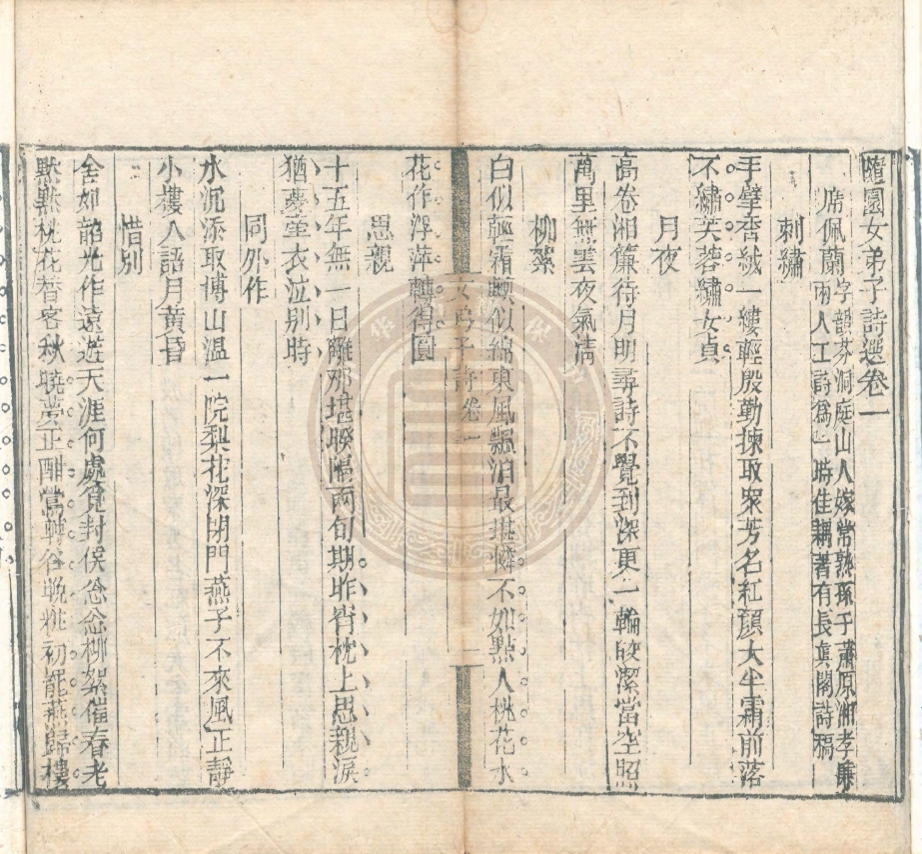 隨園女弟子詩選卷一
席佩蘭字韻芬洞庭山人嫁常熟孫子蕭原湘孝廉
兩人工詩爲一時佳耦著有長眞閣詩稿
刺繡
手擘香絨一縷輕殷勤揀取衆芳名紅顏大半霜前落
不繡芙蓉繡女貞
月夜
高卷湘簾待月明尋詩不覺到深更一輪皎潔當空照
萬里無雲夜氣淸
柳絮
白似輕霜輭似綿東風飄泊最堪憐不如點入桃花水
女弟子詩卷一
一
花作浮萍轉得圓
思親
十五年無一日離那堪睽隔兩旬期昨宵枕上思親淚
猶夢牽衣泣別時
同外作
水沉添取博山溫一院梨花深閉門燕子不來風正靜
小樓人語月黃昏
惜別
舍如韶光作遠遊天涯何處覓封侯忩忩柳絮催春老
黙黙桃花替客秋曉夢正酣鶯轉谷晚糚初罷燕歸樓